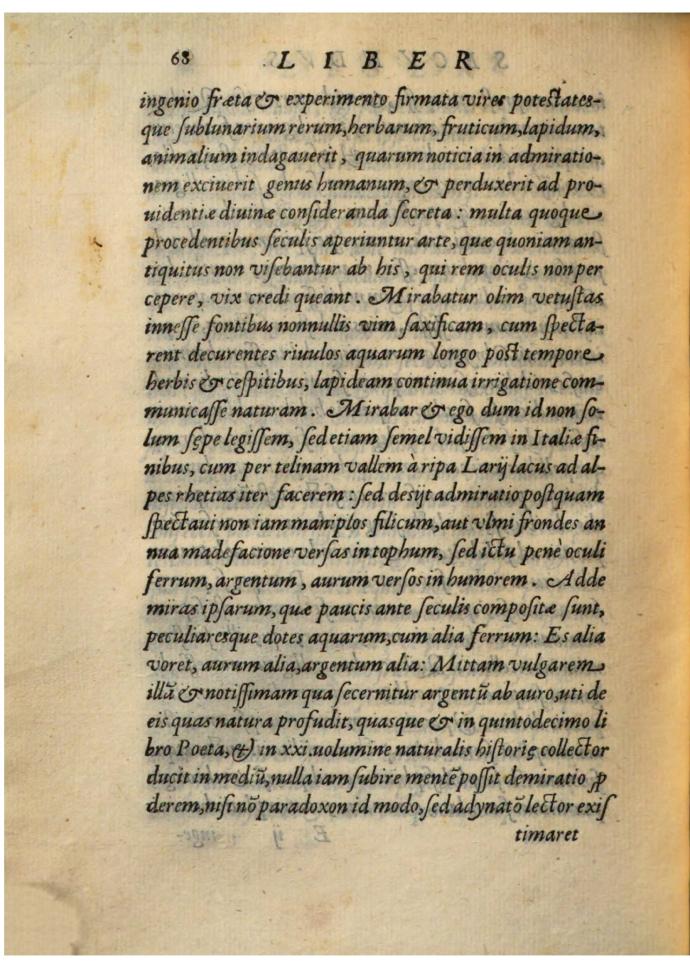 68 LIBER
ingenio fræta & experimento firmata vires potestates-
que sublunarium rerum, herbarum, fruticum, lapidum,
animalium indagauerit, quarum noticia in admiratio-
nem exciuerit genus humanum, & perduxerit ad pro-
uidentiæ diuinæ consideranda secreta: multa quoque
procedentibus seculis aperiuntur arte, quæ quoniam an-
tiquitus non visebantur ab his, qui rem oculis non per
cepere, vix credi queant. Mirabatur olim vetustas
innesse fontibus nonnullis vim saxificam, cum specta-
rent decurentes riuulos aquarum longo post tempore
herbis & cespitibus, lapideam continua irrigatione com-
municasse naturam. Mirabar & ego dum id non so-
lum sępe legissem, sed etiam semel vidissem in Italiæ fi-
nibus, cum per telinam vallem à ripa Larij lacus ad al-
pes rhetias iter facerem: sed desijt admiratio postquam
spectaui non iam maniplos filicum, aut vlmi frondes an
nua madefacione versas in tophum, sed ictu penè oculi
ferrum, argentum, aurum versos in humorem. Adde
miras ipsarum, quæ paucis ante seculis compositæ sunt,
peculiaresque dotes aquarum, cum alia ferrum: Es alia
voret, aurum alia, argentum alia: Mittam vulgarem
illā & notissimam qua secernitur argentū ab auro, uti de
eis quas natura profudit, quasque & in quintodecimo li
bro Poeta, & in xxi. uolumine naturalis historię collector
ducit in mediū, nulla iam subire mentē possit demiratio ꝓ
derem, nisi nō paradoxon id modo, sed adynatō lector exis
timaret